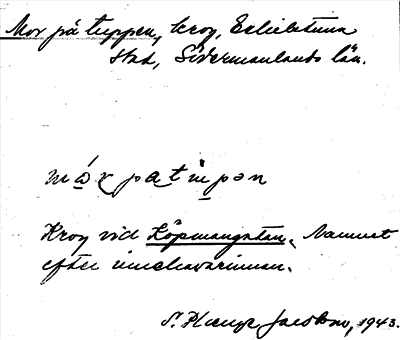 Mor på tuppen, krog, Eskilstuna
stad, Södermanlands län.
Krog vid Köpmangatan. Namnet
efter innehavarinnan.
S. Jacobson, 1943.